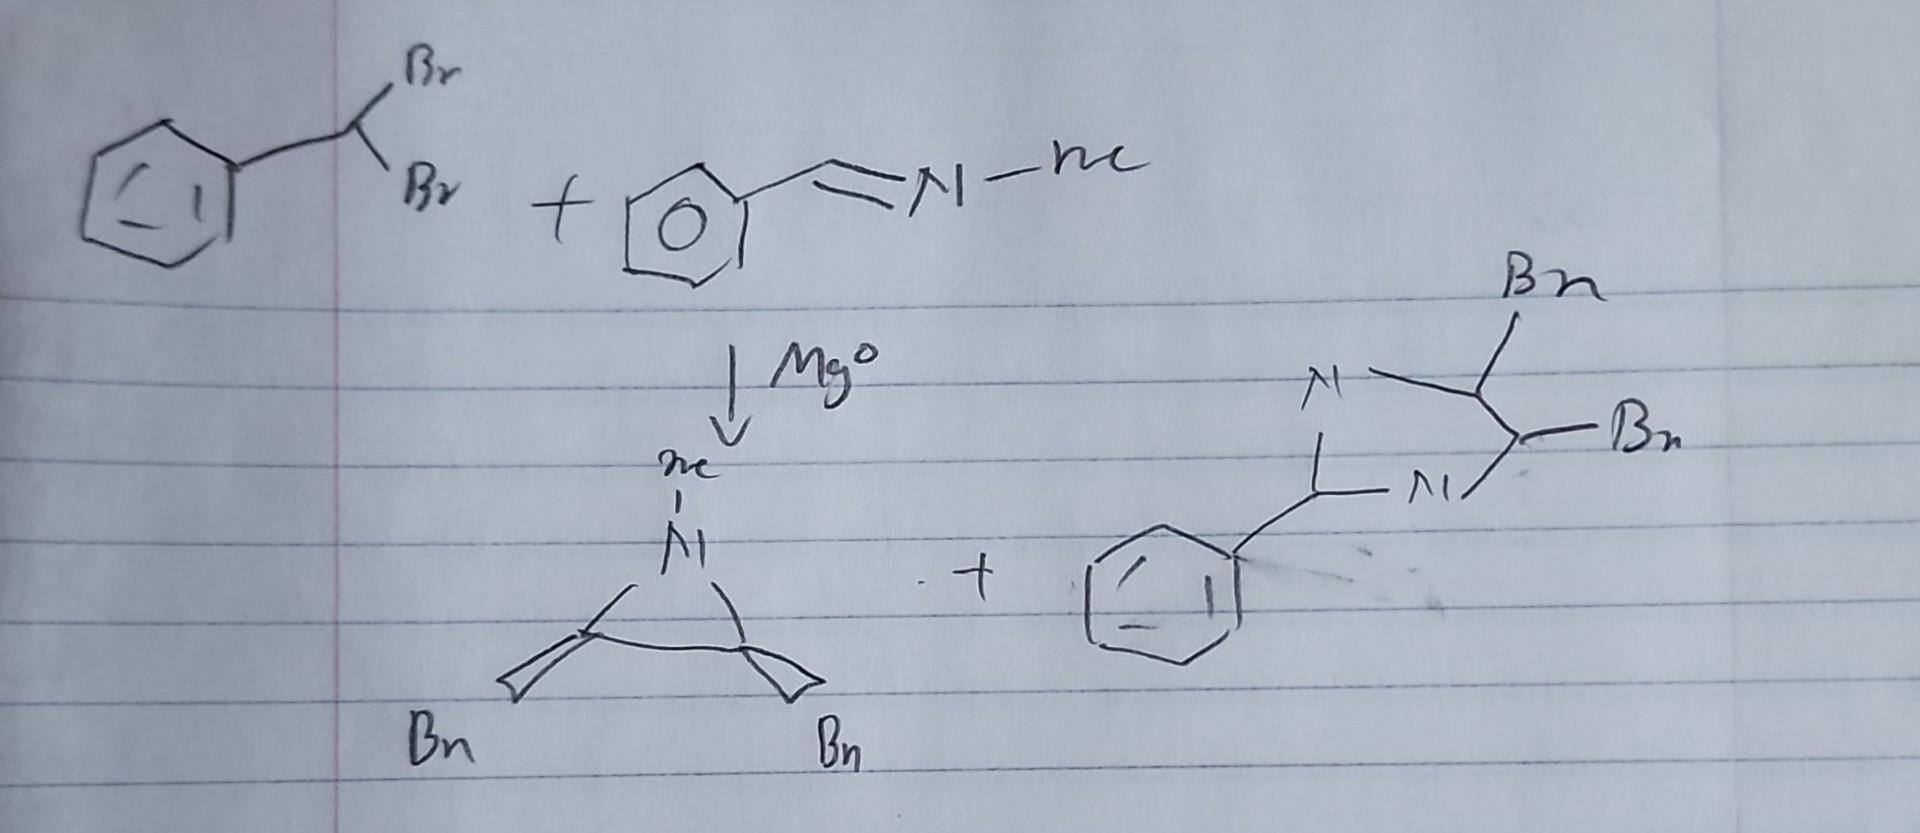 Br
Br
+
N
me
Mg⁰
me
N
Bn
Bn
+
Bn
N
Bn
N